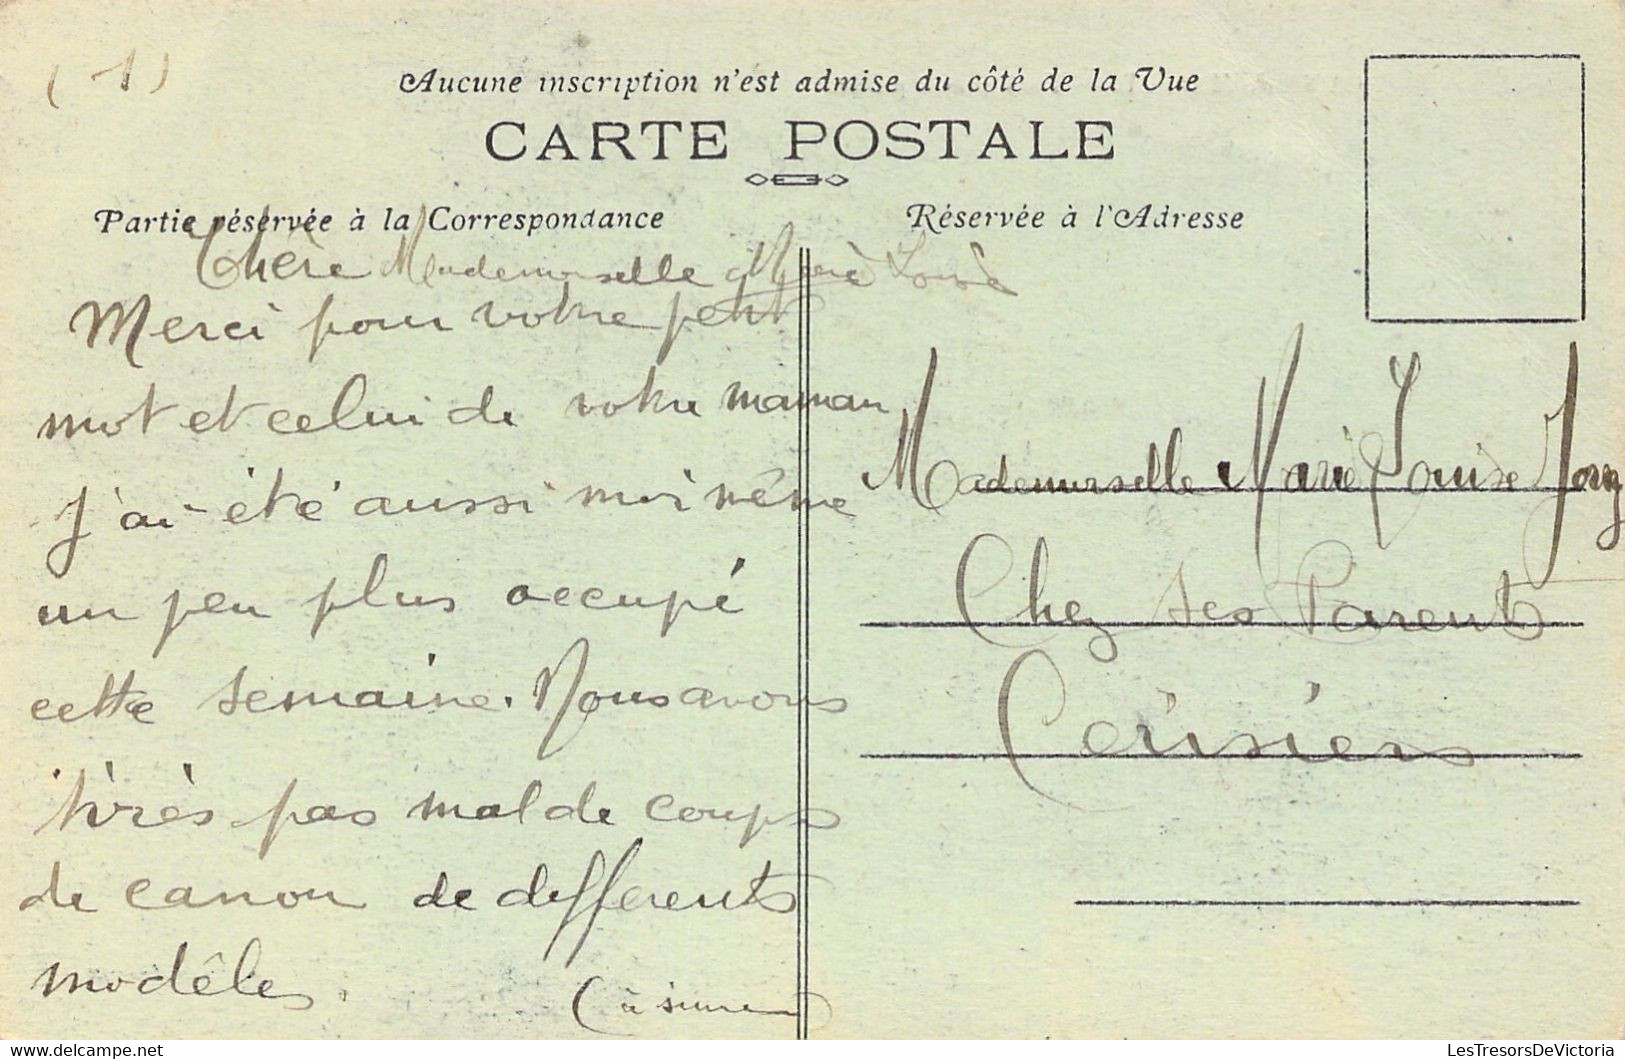 (1)
Aucune inscription n'est admise du côté de la Vue
CARTE POSTALE
Partie réservée à la Correspondance
Réservée à l'Adresse
Chère Mademoiselle Marie Louise
Merci pour votre petit
mot et celui de votre maman
J'ai été aussi moi même
un peu plus occupé
cette semaine. Nous avons
tirés pas mal de coups
de canon de differents
modêles.
(à suivre)
Mademoiselle Marie Louise
Chez ses Parents
Cerisiers
LesTresorsDeVictoria